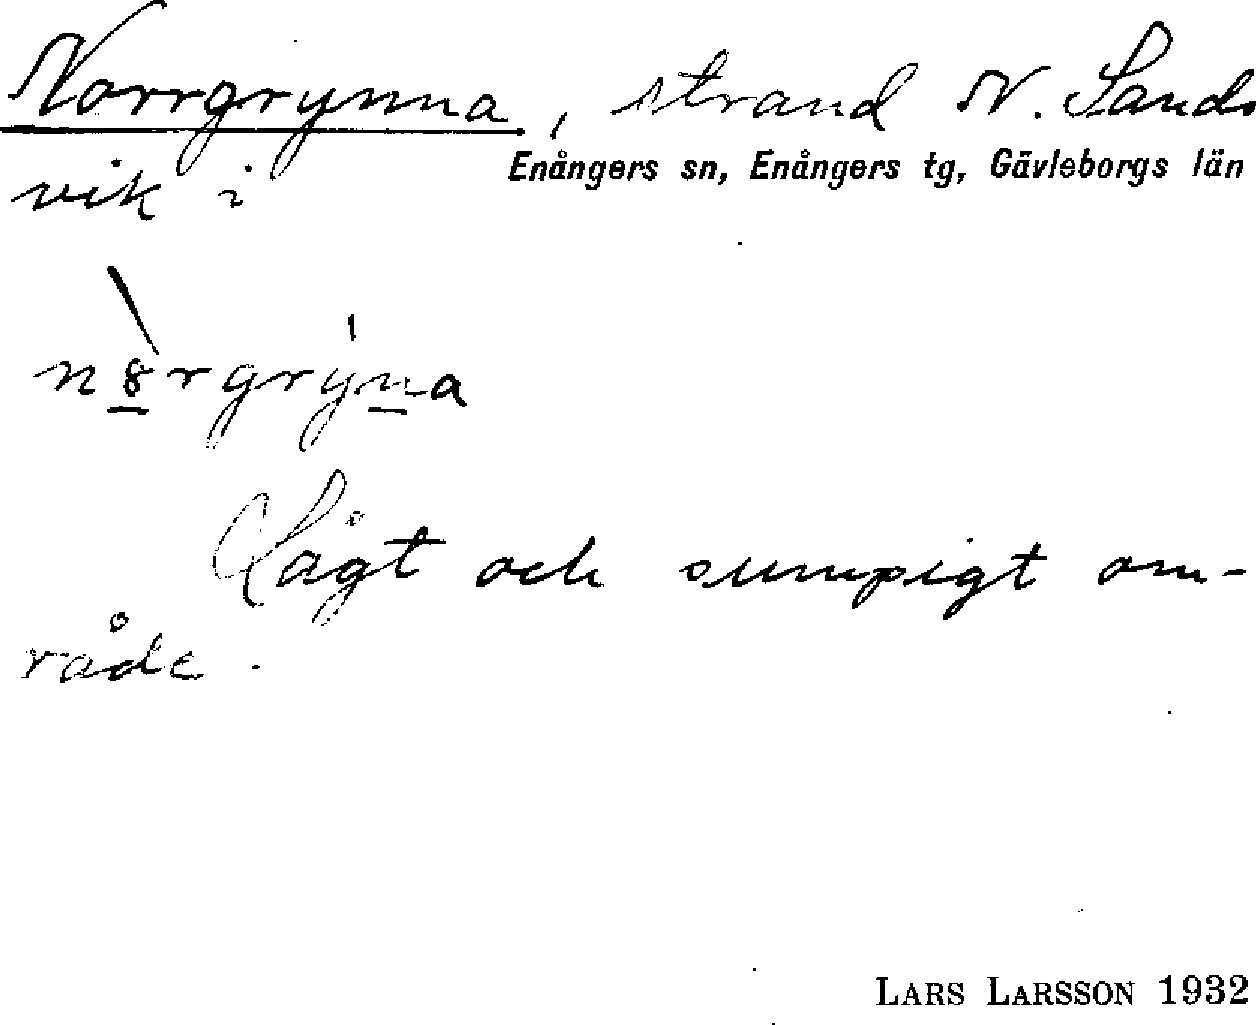 Norrgrynna, strand N. Sands
vik i
Enångers sn, Enångers tg, Gävleborgs län
n8rgryna
Lågt och sumpigt om-
råde.
LARS LARSSON 1932